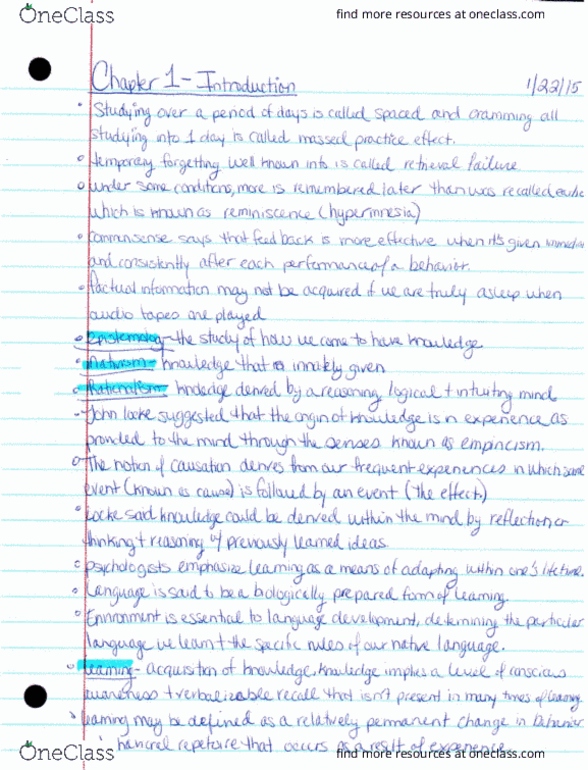 OneClass
find more resources at oneclass.com
Chapter 1 - Introduction
1/22/15
Studying over a period of days is called spaced and cramming all
studying into 1 day is called massed practice effect.
temporary forgetting well known info is called retrieval failure
under some conditions, more is remembered later than was recalled
which is known as reminiscence (hypermnesia)
commonsense says that feedback is more effective when it's given
and consistently after each performance of a behavior.
factual information may not be acquired if we are truly asleep when
audio tapes are played
epistemology - the study of how we come to have knowledge
nativism - knowledge that is innately given
Rationalism - knowledge derived by a reasoning, logical + intuiting mind
John Locke suggested that the origin of knowledge is in experience as
provided to the mind through the senses known as empiricism.
The notion of causation derives from our frequent experiences in which some
event (known as cause) is followed by an event (the effect)
Locke said knowledge could be derived within the mind by reflection or
thinking + reasoning w/ previously learned ideas
psychologists emphasize learning as a means of adapting within one's lifetime.
Language is said to be a biologically prepared form of learning.
Environment is essential to language development, determining the particular
language we learn + the specific rules of our native language.
learning - acquisition of knowledge, knowledge implies a level of conscious
awareness + verbalizable recall that isn't present in many times of learning.
learning may be defined as a relatively permanent change in behavior
repetoire that occurs as a result of experience
OneClass
find more resources at oneclass.com